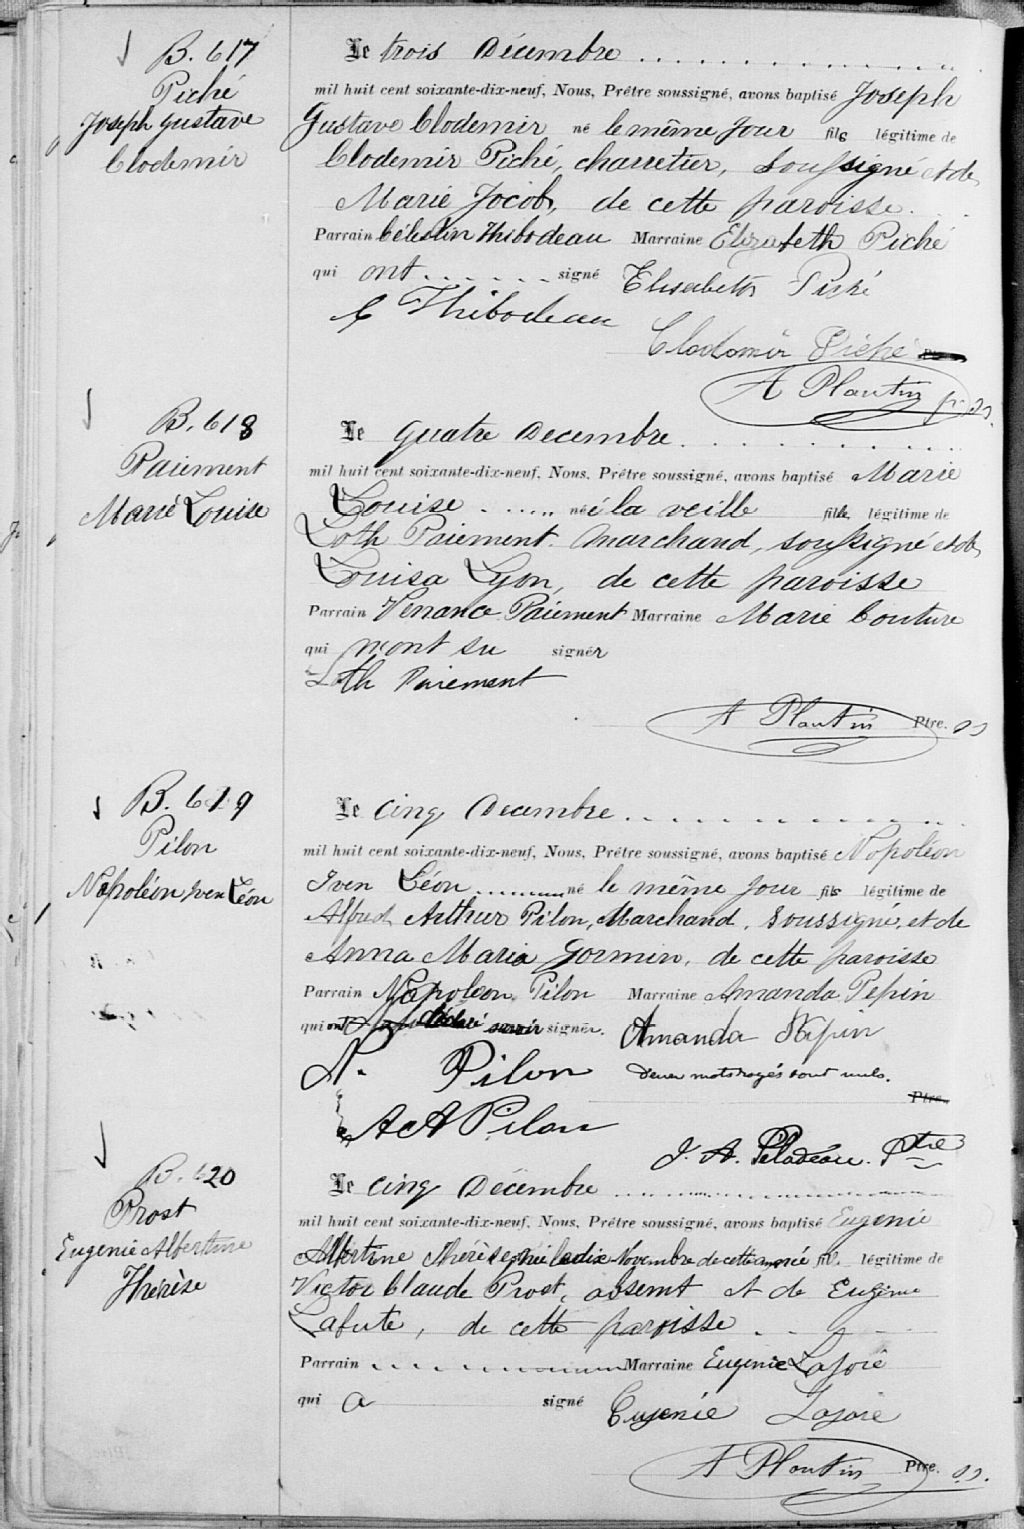 B. 617
Piché
Joseph Gustave
Clodemir
Le trois Décembre
mil huit cent soixante-dix-neuf, Nous, Prêtre soussigné, avons baptisé Joseph
Gustave Clodemir né le même jour fils légitime de
Clodemir Piché, charretier, soussigné et de
Marie Jacob, de cette paroisse.
Parrain Célestin Thibodeau Marraine Elizabeth Piché
qui ont signé Elisabeth Piché
C Thibodeau
Clodomir Piché
A Plantin ptr. ss.
B. 618
Paiement
Marie Louise
Le quatre Decembre
mil huit cent soixante-dix-neuf, Nous, Prêtre soussigné, avons baptisé Marie
Louise née la veille fille légitime de
Loth Paiement Marchand, soussigné et de
Louisa Lyon, de cette paroisse
Parrain Venance Paiement Marraine Marie Couture
qui n'ont su signer
Loth Paiement
A Plantin Ptre. ss
B. 619
Pilon
Napoléon Iven Léon
Le cinq Decembre
mil huit cent soixante-dix-neuf, Nous, Prêtre soussigné, avons baptisé Napoléon
Iven Léon né le même jour fils légitime de
Alfred Arthur Pilon, Marchand, soussigné, et de
Anna Maria Gormin, de cette paroisse
Parrain Napoléon Pilon Marraine Amanda Pepin
qui ont déclaré savoir signer. Amanda Pépin
N. Pilon deux mots rayés sont nuls.
Ptre.
A A Pilon
J. A. Péladeau. Ptre
B. 620
Prost
Eugenie Albertine
Thérèse
Le cinq Décembre
mil huit cent soixante-dix-neuf, Nous, Prêtre soussigné, avons baptisé Eugenie
Albertine Thérèse, née le dix Novembre de cette année fil. légitime de
Victor Claude Prost, absent et de Eugénie
Lafute, de cette paroisse
Parrain Marraine Eugenie Lajoie
qui a signé Eugenie Lajoie
A Plantin Ptre. ss.